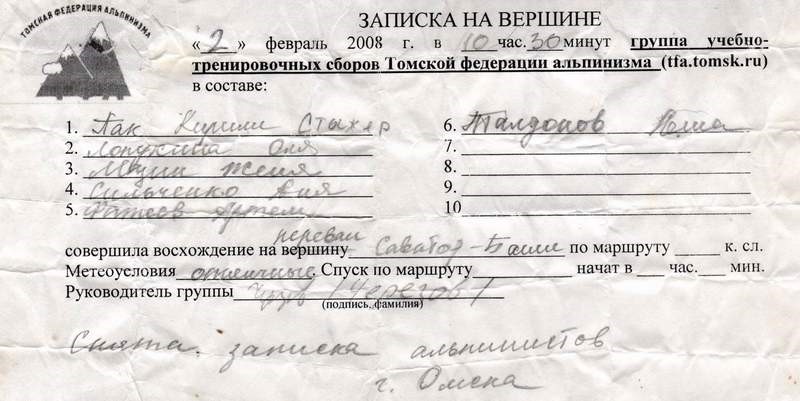 ТОМСКАЯ ФЕДЕРАЦИЯ АЛЬПИНИЗМА
ЗАПИСКА НА ВЕРШИНЕ
«2» февраль 2008 г. в 10 час. 30 минут группа учебно-
тренировочных сборов Томской федерации альпинизма (tfa.tomsk.ru)
в составе:
1. Пак Кирилл Стыхер
2. Лопухина Оля
3. Женя
4. Сильченко Аня
5. Фатеев Артем
6. Талдонов Юша
7.
8.
9.
10
перевал
совершила восхождение на вершину Саватор-Баши по маршруту ____ к. сл.
Метеоусловия отличные. Спуск по маршруту ____ начат в ___ час. ___ мин.
Руководитель группы /Черезов/
(подпись, фамилия)
Снята записка альпинистов
г. Омска